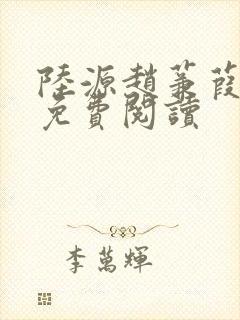 陸源趙蒹葭
免費閱讀
李萬輝